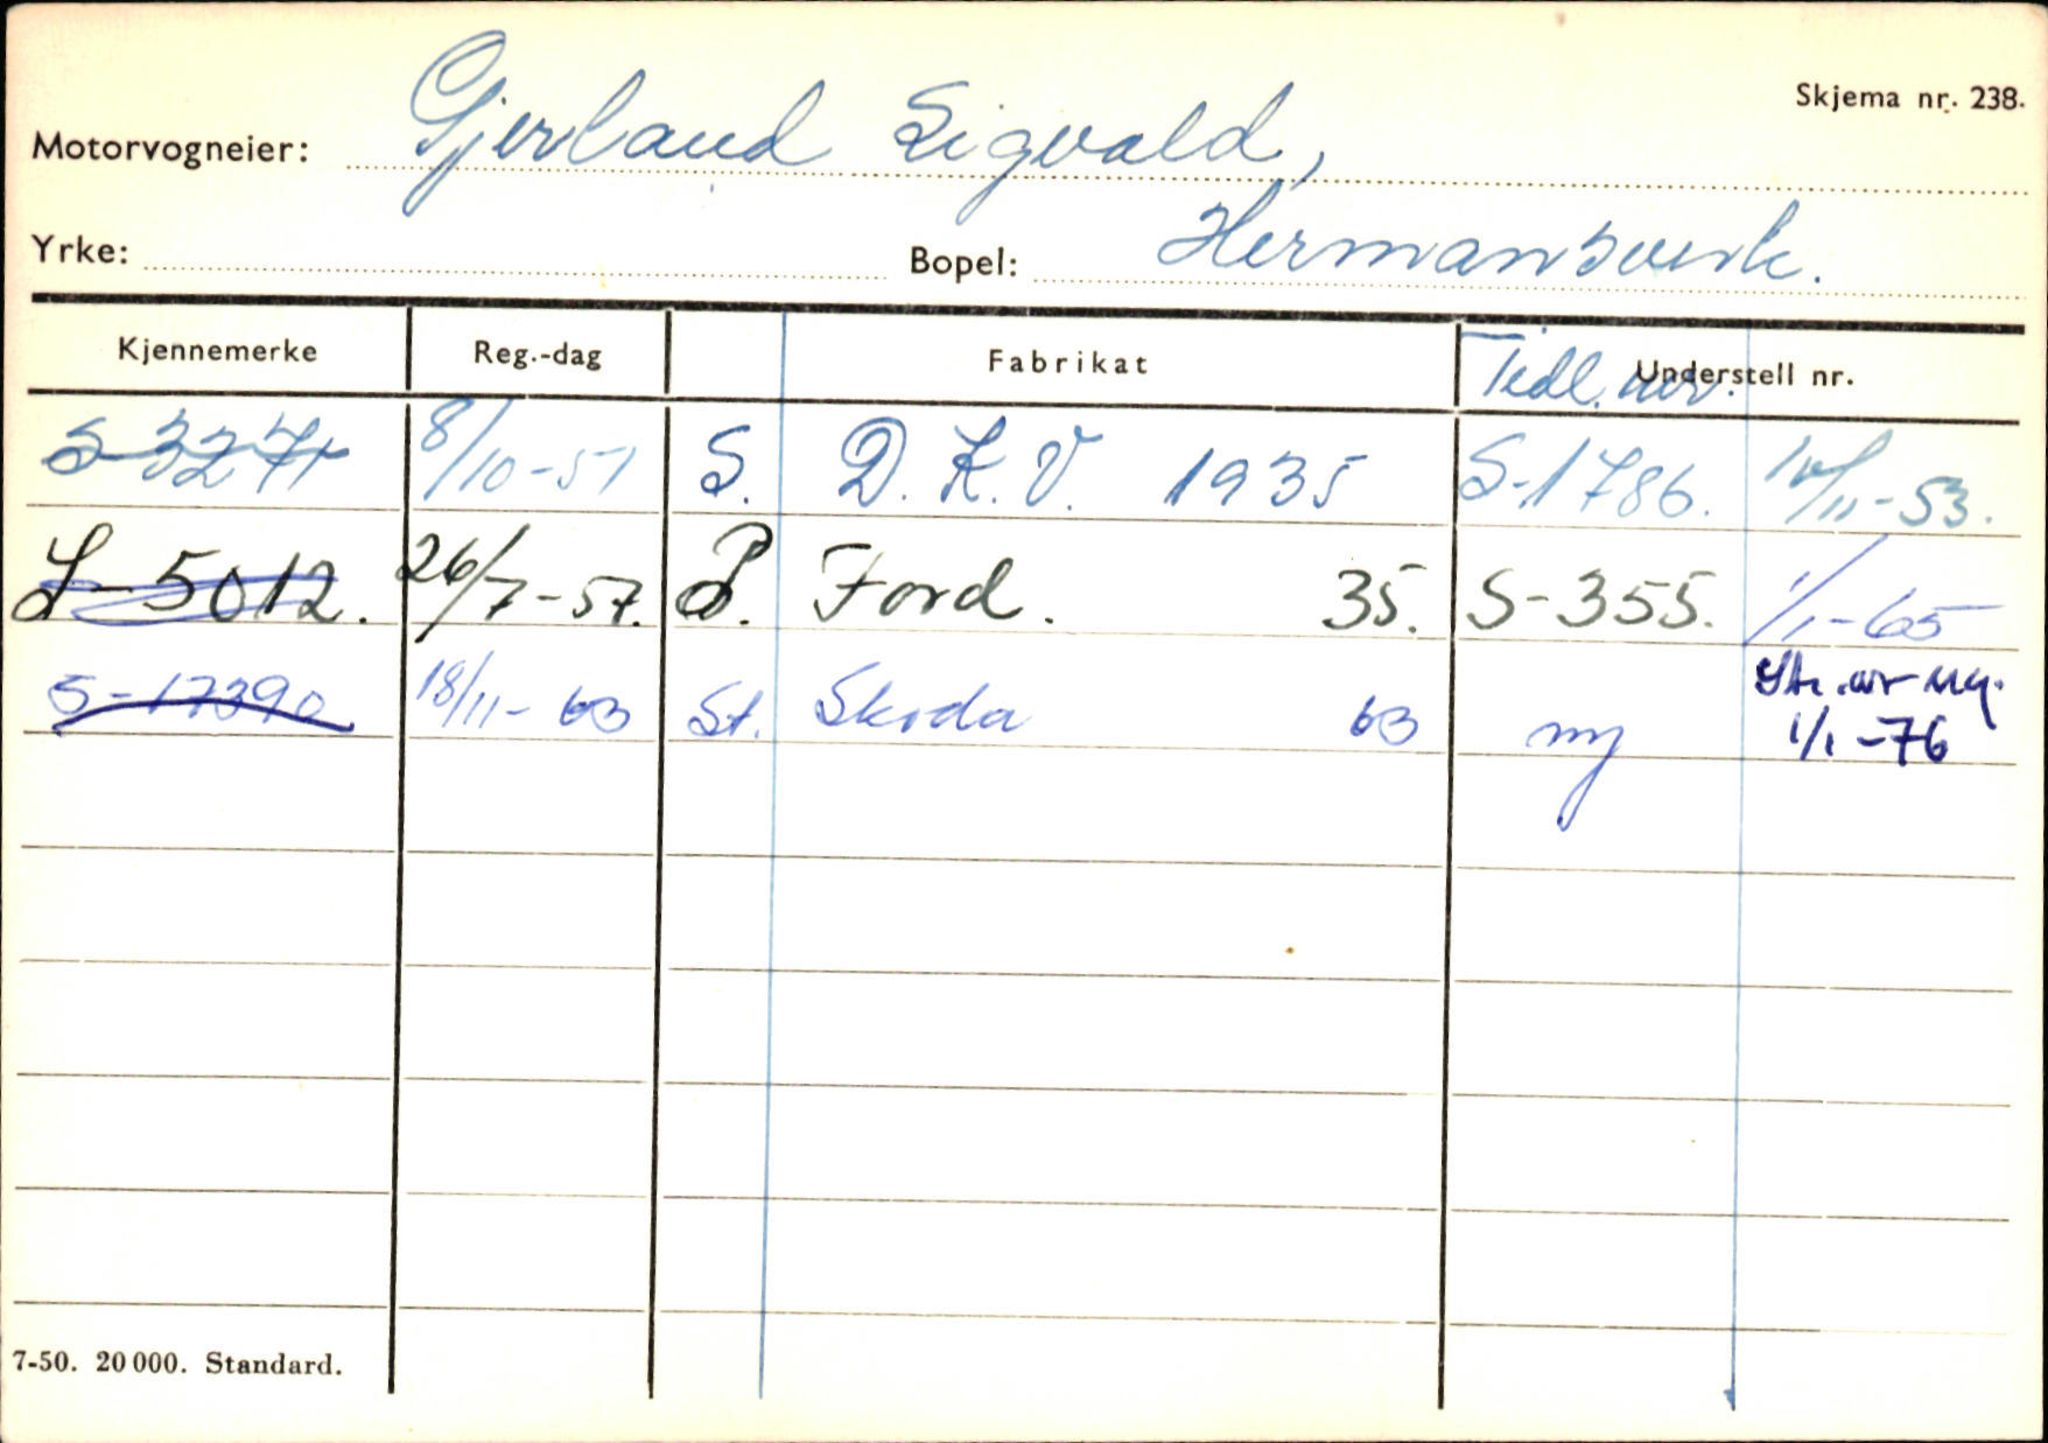 Skjema nr. 238.
Motorvogneier: Gjerland Sigvald,
Yrke: Bopel: Hermansverk.
Kjennemerke Reg.-dag Fabrikat Tidl. nr. Understell nr.
S-3271 8/10-51 S. D.K.V. 1935 S-1786. 10/11-53.
S-5012. 26/7-57. P. Ford. 35. S-355. 1/1-65
S-17390 18/11-63 St. Skoda 63 ny
1/1-76
7-50. 20 000. Standard.